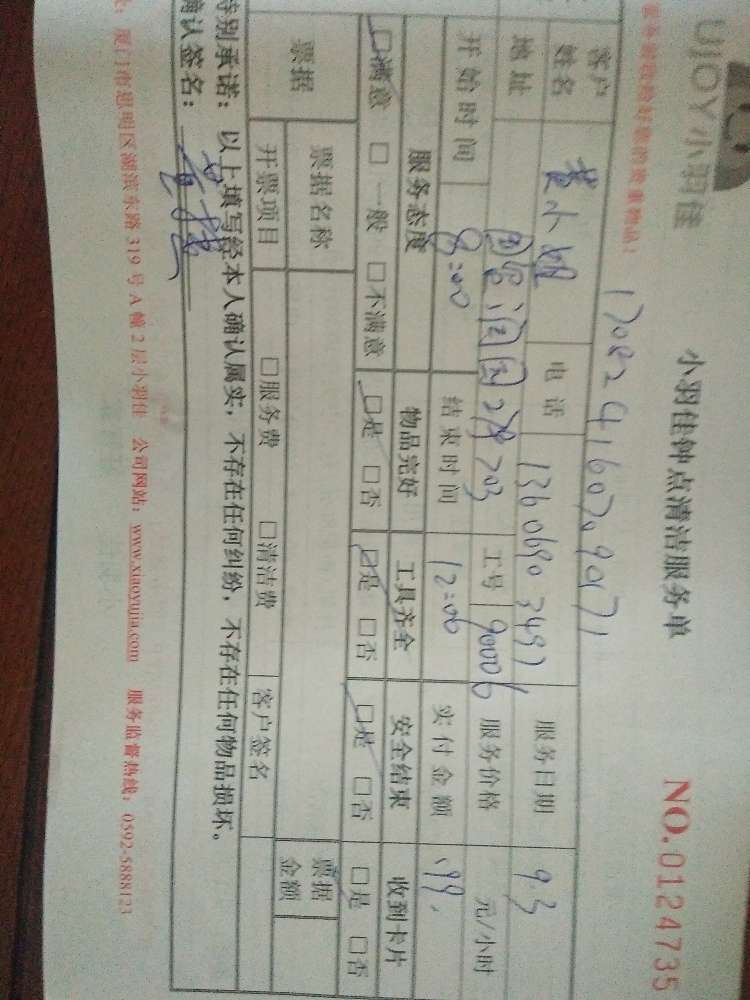 UJOY小羽佳 小羽佳钟点清洁服务单 NO.0124735
客户姓名 黄小姐 电话 13606903497 服务日期 9.3
地址 203 工号 90006 服务价格 元/小时
开始时间 8:00 结束时间 12:00 实付金额 199.
服务态度 物品完好 工具齐全 安全结束 收到卡片
□满意 □一般 □不满意 □是 □否 □是 □否 □是 □否 □是 □否
票据 票据名称 票据金额
开票项目 □服务费 □清洁费 客户签名
特别承诺：以上填写经本人确认属实，不存在任何纠纷，不存在任何物品损坏。
确认签名：
厦门市思明区湖滨东路 319 号 A 幢 2 层小羽佳 公司网站：www.xiaoyujia.com 服务监督热线：0592-5888123